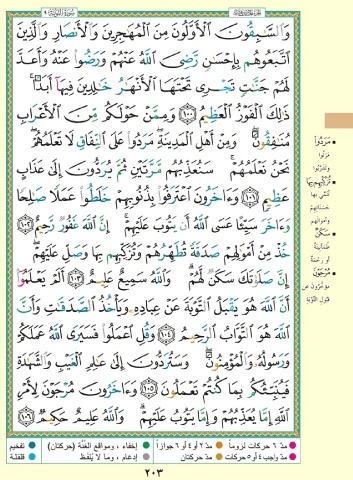 سُورَةُ التَّوْبَةِ ٩
وَالسَّٰبِقُونَ الْأَوَّلُونَ مِنَ الْمُهَٰجِرِينَ وَالْأَنصَارِ وَالَّذِينَ
اتَّبَعُوهُم بِإِحْسَٰنٍ رَّضِيَ اللَّهُ عَنْهُمْ وَرَضُوا عَنْهُ وَأَعَدَّ
لَهُمْ جَنَّٰتٍ تَجْرِي تَحْتَهَا الْأَنْهَٰرُ خَٰلِدِينَ فِيهَا أَبَدًا
ذَٰلِكَ الْفَوْزُ الْعَظِيمُ ١٠٠ وَمِمَّنْ حَوْلَكُم مِّنَ الْأَعْرَابِ
مُنَٰفِقُونَ وَمِنْ أَهْلِ الْمَدِينَةِ مَرَدُوا عَلَى النِّفَاقِ لَا تَعْلَمُهُمْ
نَحْنُ نَعْلَمُهُمْ سَنُعَذِّبُهُم مَّرَّتَيْنِ ثُمَّ يُرَدُّونَ إِلَىٰ عَذَابٍ
عَظِيمٍ ١٠١ وَءَاخَرُونَ اعْتَرَفُوا بِذُنُوبِهِمْ خَلَطُوا عَمَلًا صَٰلِحًا
وَءَاخَرَ سَيِّئًا عَسَى اللَّهُ أَن يَتُوبَ عَلَيْهِمْ إِنَّ اللَّهَ غَفُورٌ رَّحِيمٌ ١٠٢
خُذْ مِنْ أَمْوَٰلِهِمْ صَدَقَةً تُطَهِّرُهُمْ وَتُزَكِّيهِم بِهَا وَصَلِّ عَلَيْهِمْ
إِنَّ صَلَوٰتَكَ سَكَنٌ لَّهُمْ وَاللَّهُ سَمِيعٌ عَلِيمٌ ١٠٣ أَلَمْ يَعْلَمُوا
أَنَّ اللَّهَ هُوَ يَقْبَلُ التَّوْبَةَ عَنْ عِبَادِهِ وَيَأْخُذُ الصَّدَقَٰتِ وَأَنَّ
اللَّهَ هُوَ التَّوَّابُ الرَّحِيمُ ١٠٤ وَقُلِ اعْمَلُوا فَسَيَرَى اللَّهُ عَمَلَكُمْ
وَرَسُولُهُ وَالْمُؤْمِنُونَ وَسَتُرَدُّونَ إِلَىٰ عَٰلِمِ الْغَيْبِ وَالشَّهَٰدَةِ
فَيُنَبِّئُكُم بِمَا كُنتُمْ تَعْمَلُونَ ١٠٥ وَءَاخَرُونَ مُرْجَوْنَ لِأَمْرِ
اللَّهِ إِمَّا يُعَذِّبُهُمْ وَإِمَّا يَتُوبُ عَلَيْهِمْ وَاللَّهُ عَلِيمٌ حَكِيمٌ ١٠٦
مَرَدُوا
مَرَنُوا
وتدرّبوا
تُزَكِّيهِم بِهَا
تُنمّي بها
حسناتِهم
وأموالَهم
سَكَنٌ
طمأنينة
أو رحمة
مُرْجَوْنَ
مؤخّرون عن
قبول التوبة
مدّ ٦ حركات لزوماً مدّ ٢ أو ٤ أو ٦ جوازاً إخفاء، ومواقع الغُنَّة (حركتان) تفخيم
مدّ واجب ٤ أو ٥ حركات مدّ حركتان إدغام، وما لا يُلفَظ قلقلة
٢٠٣